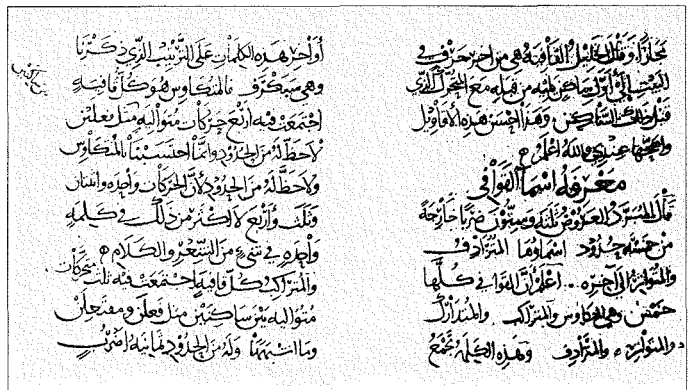 مجازا وقال الخليل القافية هي من اخر حرف في
البيت الى اول ساكن يليه من قبله مع المتحرك الذي
قبل ذلك الساكن وهذا احسن هذه الاقاويل
واصحها عندي والله اعلم
معرفة اسماء القوافي
قال المبرد العروض ثلثة وستون ضربا خارجة
من خمسة حدود اسماؤها المترادف
والمتواتر الى آخره ... اعلم ان القوافي كلها
خمس وهي المتكاوس والمتراكب والمتدارك
والمتواتر والمترادف وهذه الكلمة تجمع
اواخر هذه الكلمات على الترتيب الذي ذكرنا
وهي فالمتكاوس هو كل قافية
اجتمعت فيه اربع حركات متوالية مثل فعلتن
لا حظ له من الحدود وانما احتسبنا بالمتكاوس
ولا حظ له من الحدود لان الحركات واحدة واثنتان
وثلث واربع لا اكثر من ذلك في كلمة
واحدة في شيء من الشعر والكلام
والمتراكب كل قافية اجتمعت فيه ثلث حركات
متوالية بين ساكنين مثل فعلن ومفتعلن
وما اشبههما وله من الحدود ثمانية اضرب